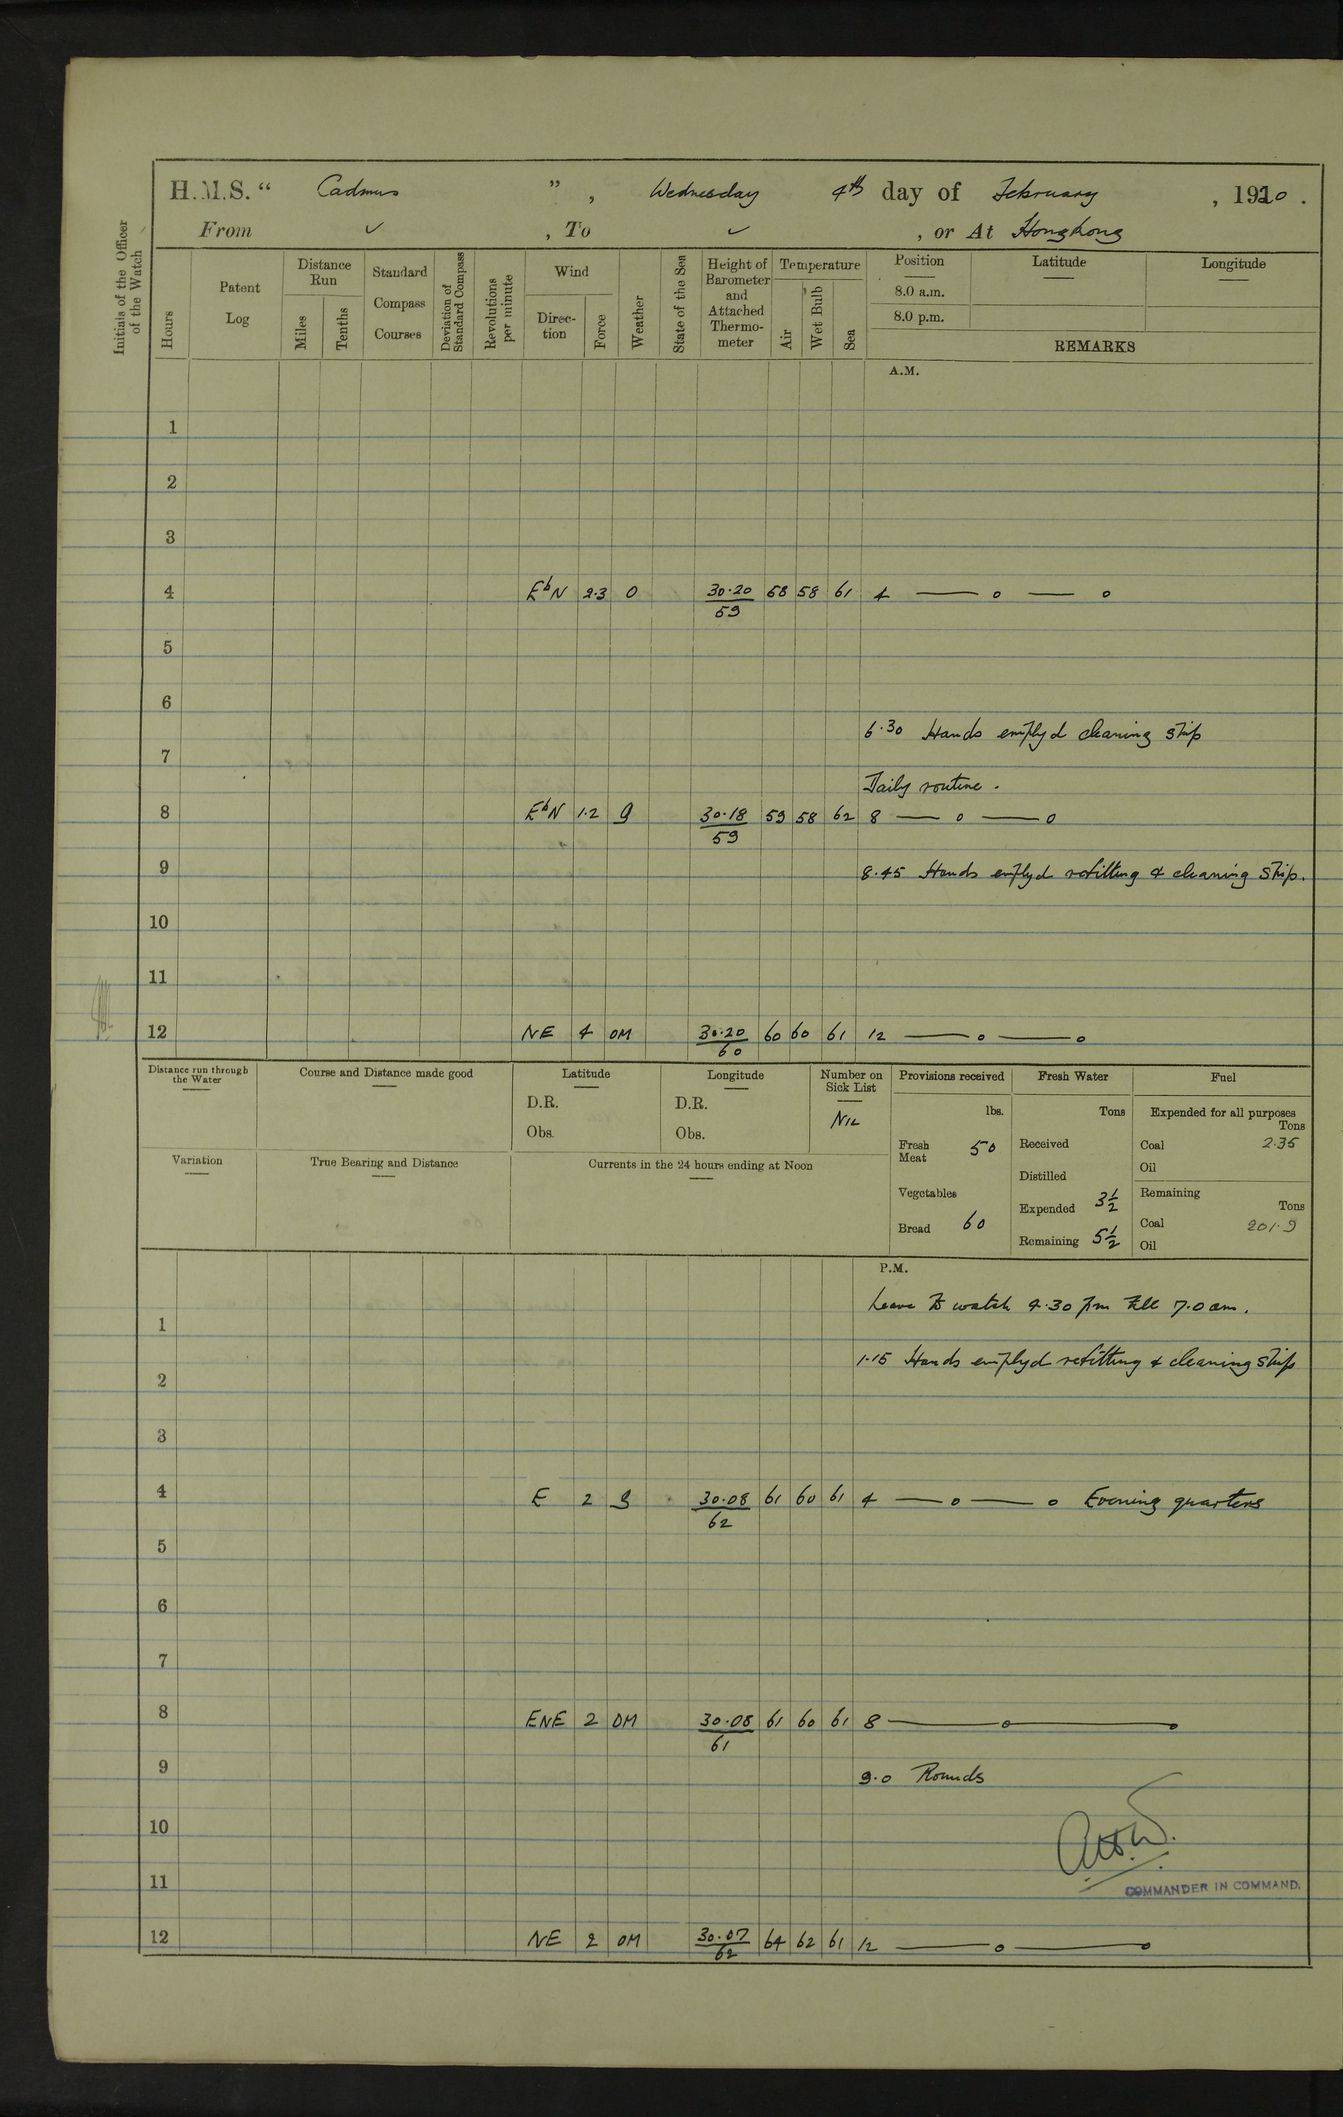 H.M.S. “ Cadmus ” , Wednesday 4th day of February , 1920 .
From ✓ , To ✓ , or At Hongkong
Initials of the Officer of the Watch
Hours
Patent Log
Distance Run
Miles
Tenths
Standard Compass Courses
Deviation of Standard Compass
Revolutions per minute
Wind
Direc-tion
Force
Weather
State of the Sea
Height of Barometer and Attached Thermo-meter
Temperature
Air
Wet Bulb
Sea
Position
8.0 a.m.
8.0 p.m.
Latitude
Longitude
REMARKS
A.M.
1
2
3
4 EbN 2·3 O 30·20/59 58 58 61 4 — o — o
5
6
6·30 Hands employd cleaning ship
7
Daily routine .
8 EbN 1·2 g 30·18/59 59 58 62 8 — o — o
9 8·45 Hands employd refitting & cleaning ship.
10
11
12 NE 4 OM 30·20/60 60 60 61 12 — o — o
Distance run through the Water
Course and Distance made good
Latitude
D.R.
Obs.
Longitude
D.R.
Obs.
Number on Sick List
NIL
Provisions received
lbs.
Fresh Meat 50
Vegetables
Bread 60
Fresh Water
Tons
Received
Distilled
Expended 3½
Remaining 5½
Fuel
Expended for all purposes
Tons
Coal 2·35
Oil
Remaining
Tons
Coal 201·9
Oil
Variation
True Bearing and Distance
Currents in the 24 hours ending at Noon
P.M.
Leave to watch 4·30 pm till 7·0 am.
1
1·15 Hands employd refitting & cleaning ship
2
3
4 E 2 g 30·08/62 61 60 61 4 — o — o Evening quarters
5
6
7
8 ENE 2 OM 30·08/61 61 60 61 8 — o — o
9 9·0 Rounds
10
11
COMMANDER IN COMMAND.
12 NE 2 OM 30·07/62 64 62 61 12 — o — o